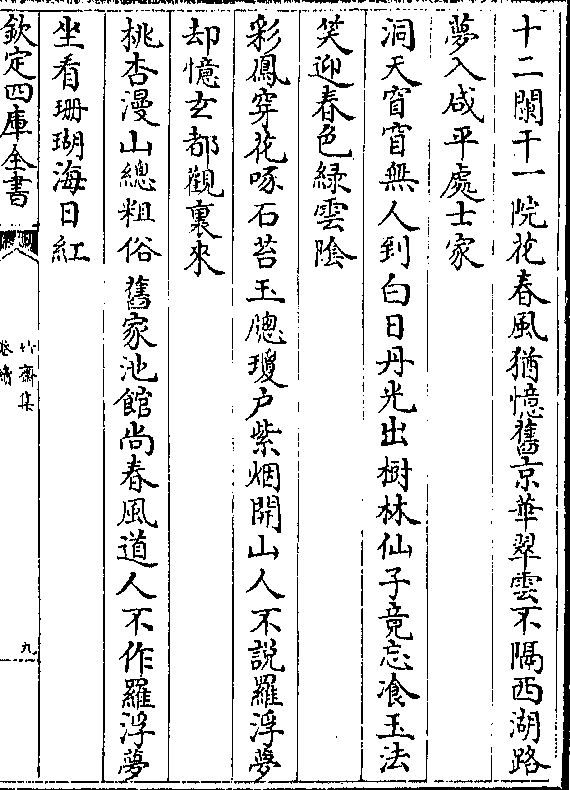 十二闌干一院花春風猶憶舊京華翠雲不隔西湖路
夢入咸平處士家
洞天窅窅無人到白日丹光出樹林仙子竟忘飡玉法
笑迎春色緑雲隂
彩鳳穿花啄石苔玉牕瓊户紫烟開山人不説羅浮夢
却憶玄都觀裏來
桃杏漫山總粗俗舊家池館尚春風道人不作羅浮夢
坐看珊瑚海日紅
欽定四庫全書
竹齋集
卷續
九